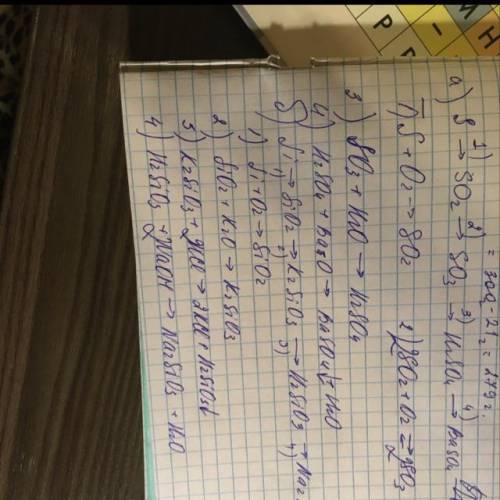 = 300г - 21г = 279г.
а) S →1) SO2 →2) SO3 →3) H2SO4 →4) BaSO4
1) S + O2 → SO2   2) 2SO2 + O2 ⇄ 2SO3
3) SO3 + H2O → H2SO4
4) H2SO4 + BaO → BaSO4↓ + H2O
б) Si →1) SiO2 →2) K2SiO3 →3) H2SiO3 →4) Na2
1) Si + O2 → SiO2
2) SiO2 + K2O → K2SiO3
3) K2SiO3 + 2HCl → 2KCl + H2SiO3↓
4) H2SiO3 + 2NaOH → Na2SiO3 + H2O
И Н
Р